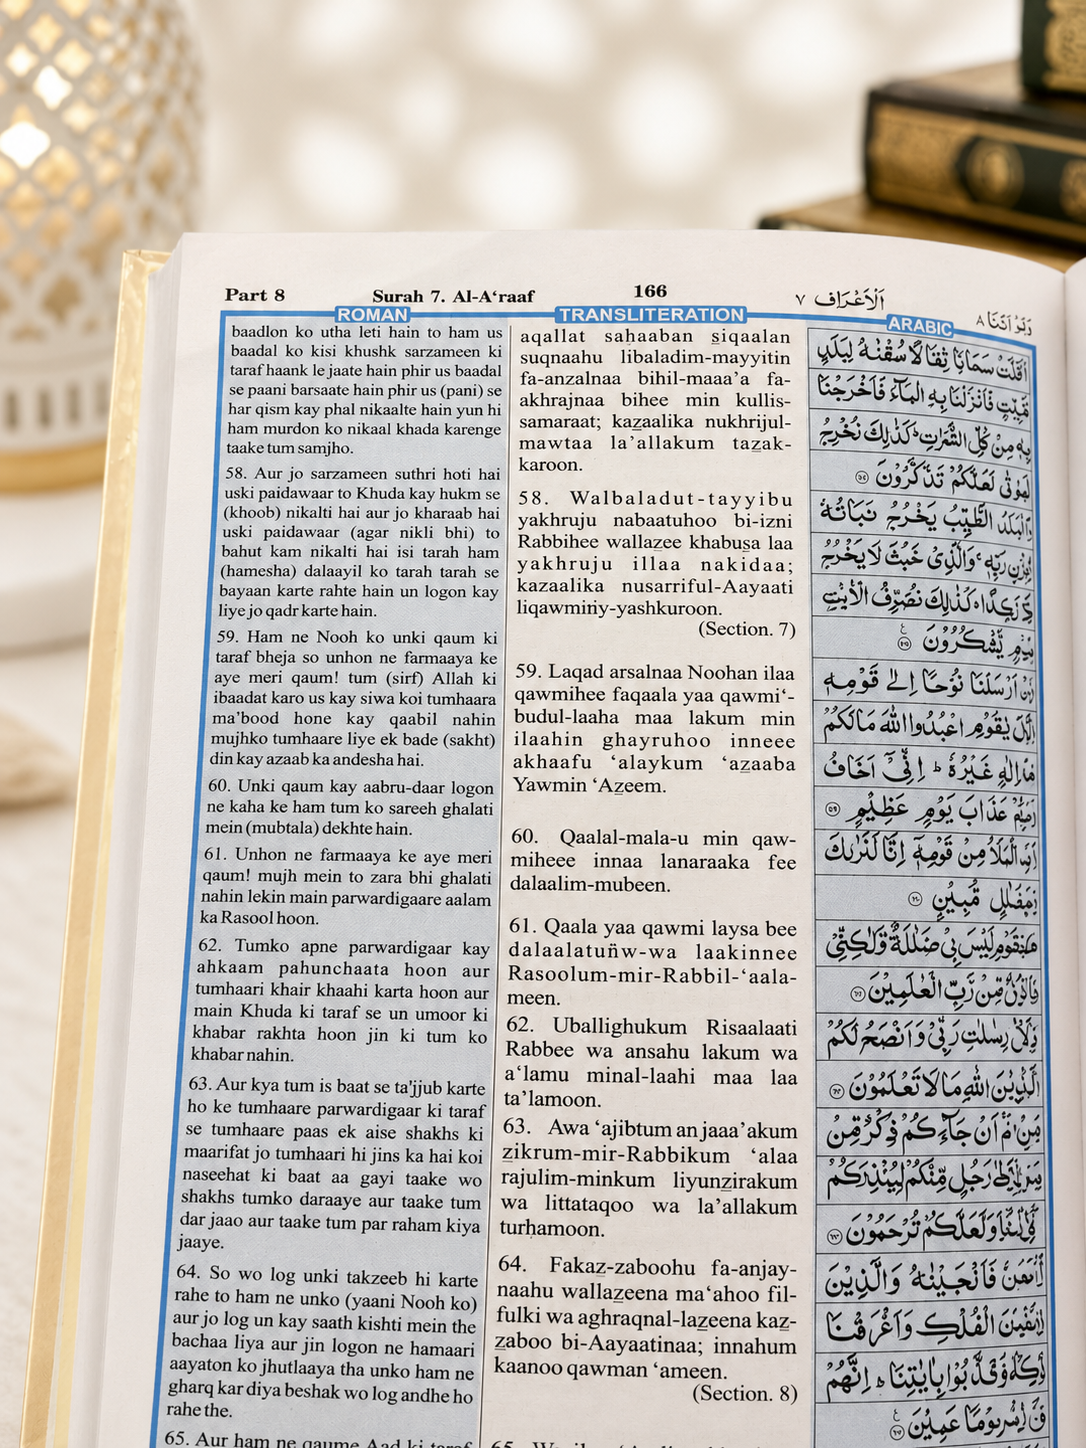 Part 8
Surah 7. Al-A‘raaf
166
اَلْاَعْرَاف ٧
ROMAN
baadlon ko utha leti hain to ham us
baadal ko kisi khushk sarzameen ki
taraf haank le jaate hain phir us baadal
se paani barsaate hain phir us (pani) se
har qism kay phal nikaalte hain yun hi
ham murdon ko nikaal khada karenge
taake tum samjho.
58. Aur jo sarzameen suthri hoti hai
uski paidawaar to Khuda kay hukm se
(khoob) nikalti hai aur jo kharaab hai
uski paidawaar (agar nikli bhi) to
bahut kam nikalti hai isi tarah ham
(hamesha) dalaayil ko tarah tarah se
bayaan karte rahte hain un logon kay
liye jo qadr karte hain.
59. Ham ne Nooh ko unki qaum ki
taraf bheja so unhon ne farmaaya ke
aye meri qaum! tum (sirf) Allah ki
ibaadat karo us kay siwa koi tumhaara
ma’bood hone kay qaabil nahin
mujhko tumhaare liye ek bade (sakht)
din kay azaab ka andesha hai.
60. Unki qaum kay aabru-daar logon
ne kaha ke ham tum ko sareeh ghalati
mein (mubtala) dekhte hain.
61. Unhon ne farmaaya ke aye meri
qaum! mujh mein to zara bhi ghalati
nahin lekin main parwardigaare aalam
ka Rasool hoon.
62. Tumko apne parwardigaar kay
ahkaam pahunchaata hoon aur
tumhaari khair khaahi karta hoon aur
main Khuda ki taraf se un umoor ki
khabar rakhta hoon jin ki tum ko
khabar nahin.
63. Aur kya tum is baat se ta'jjub karte
ho ke tumhaare parwardigaar ki taraf
se tumhaare paas ek aise shakhs ki
maarifat jo tumhaari hi jins ka hai koi
naseehat ki baat aa gayi taake wo
shakhs tumko daraaye aur taake tum
dar jaao aur taake tum par raham kiya
jaaye.
64. So wo log unki takzeeb hi karte
rahe to ham ne unko (yaani Nooh ko)
aur jo log un kay saath kishti mein the
bachaa liya aur jin logon ne hamaari
aayaton ko jhutlaaya tha unko ham ne
gharq kar diya beshak wo log andhe ho
rahe the.
65. Aur ham ne qaume Aad ki taraf
TRANSLITERATION
aqallat saḥaaban s̱iqaalan
suqnaahu libaladim-mayyitin
fa-anzalnaa bihil-maaa’a fa-
akhrajnaa bihee min kullis-
samaraat; kaz̲aalika nukhrijul-
mawtaa la’allakum taz̲ak-
karoon.
58. Walbaladut-tayyibu
yakhruju nabaatuhoo bi-izni
Rabbihee wallaz̲ee khabus̱a laa
yakhruju illaa nakidaa;
kazaalika nusarriful-Aayaati
liqawmiñy-yashkuroon.
(Section. 7)
59. Laqad arsalnaa Noohan ilaa
qawmihee faqaala yaa qawmi‘-
budul-laaha maa lakum min
ilaahin ghayruhoo inneee
akhaafu ‘alaykum ‘az̲aaba
Yawmin ‘Az̲eem.
60. Qaalal-mala-u min qaw-
miheee innaa lanaraaka fee
dalaalim-mubeen.
61. Qaala yaa qawmi laysa bee
dalaalatuñw-wa laakinnee
Rasoolum-mir-Rabbil-‘aala-
meen.
62. Uballighukum Risaalaati
Rabbee wa ansahu lakum wa
a‘lamu minal-laahi maa laa
ta’lamoon.
63. Awa ‘ajibtum an jaaa’akum
z̲ikrum-mir-Rabbikum ‘alaa
rajulim-minkum liyunz̲irakum
wa littataqoo wa la’allakum
turḥamoon.
64. Fakaz̲-zaboohu fa-anjay-
naahu wallaz̲eena ma‘ahoo fil-
fulki wa aghraqnal-laz̲eena kaz̲-
z̲aboo bi-Aayaatinaa; innahum
kaanoo qawman ‘ameen.
(Section. 8)
ARABIC
اَقَلَّتْ سَحَابًا ثِقَالًا سُقْنٰهُ لِبَلَدٍ
مَّيِّتٍ فَاَنْزَلْنَا بِهِ الْمَآءَ فَاَخْرَجْنَا
بِهٖ مِنْ كُلِّ الثَّمَرٰتِ كَذٰلِكَ نُخْرِجُ
لَعَلَّكُمْ تَذَكَّرُوْنَ
الطَّيِّبُ يَخْرُجُ نَبَاتُهٗ
رَبِّهٖ وَالَّذِيْ خَبُثَ لَا يَخْرُجُ
كَذٰلِكَ نُصَرِّفُ الْاٰيٰتِ
يَّشْكُرُوْنَ
اَرْسَلْنَا نُوْحًا اِلٰى قَوْمِهٖ
يٰقَوْمِ اعْبُدُوا اللّٰهَ مَا لَكُمْ
غَيْرُهٗ ؕ اِنِّيْٓ اَخَافُ
عَذَابَ يَوْمٍ عَظِيْمٍ
مِنْ قَوْمِهٖٓ اِنَّا لَنَرٰىكَ
مُّبِيْنٍ
لَيْسَ بِيْ ضَلٰلَةٌ وَّلٰكِنِّيْ
مِّنْ رَّبِّ الْعٰلَمِيْنَ
رِسٰلٰتِ رَبِّيْ وَاَنْصَحُ لَكُمْ
اللّٰهِ مَا لَا تَعْلَمُوْنَ
اَنْ جَآءَكُمْ ذِكْرٌ مِّنْ
رَجُلٍ مِّنْكُمْ لِيُنْذِرَكُمْ
وَلَعَلَّكُمْ تُرْحَمُوْنَ
فَاَنْجَيْنٰهُ وَالَّذِيْنَ
الْفُلْكِ وَاَغْرَقْنَا
بِاٰيٰتِنَا ؕ اِنَّهُمْ
عَمِيْنَ